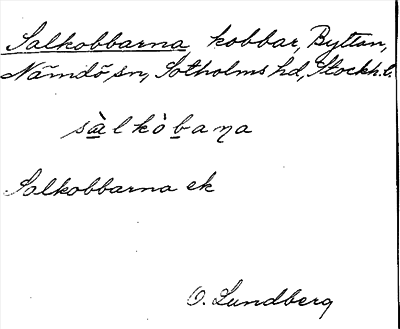 Salkobbarna, kobbar, Byttan,
Nämdö sn, Sotholms hd, Stockh. l.
sàlkòbaṇa
Salkobbarna ek
O. Lundberg